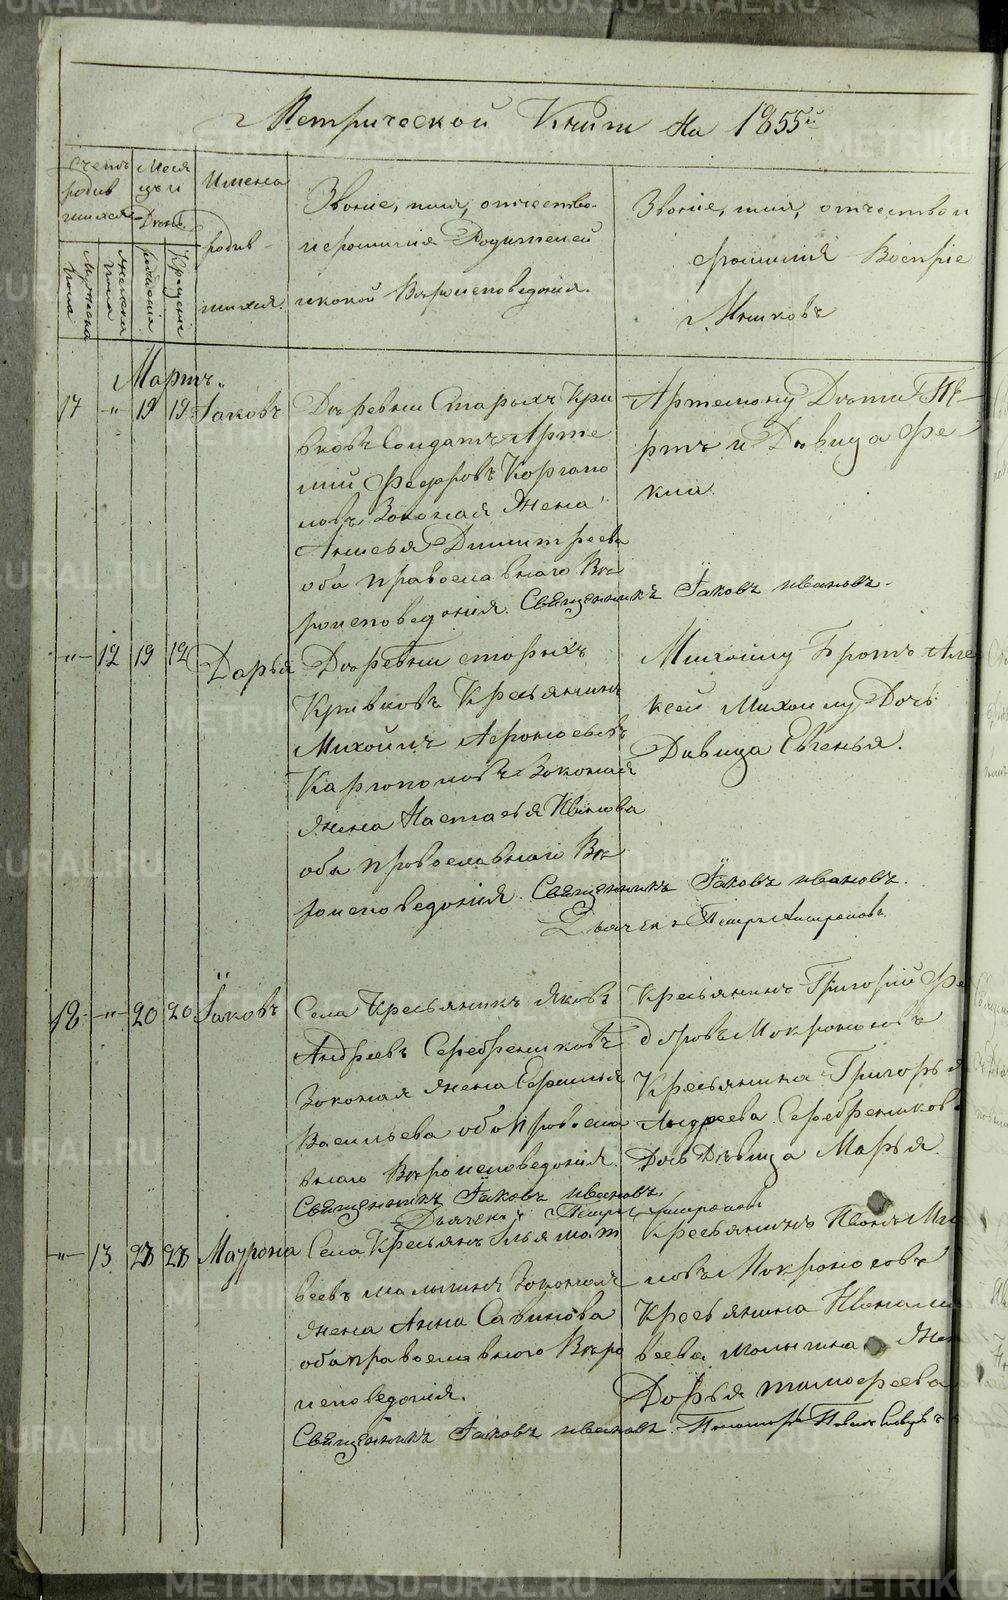 Метрической Книги на 1855й
Счетъ родив шихся
Меся цъ и День
Имена родив шихся.
Званіе, имя, отчество
и фамилія Родителей
и какой Вѣроисповеданія.
Званіе, имя, отчество и
фамилія Воспріе
мниковъ
Мужеска пола
Женска пола
рождения
Крещения
Мартъ.
17 " 19 19 Іаковъ
Деревни Старыхъ Кри
вковъ Солдатъ Арте
мій Федоровъ Каргапо
ловъ Законая Жена
Димитреева
оба православнаго Вѣ
роисповеданія. Священникъ Іаковъ Ивановъ
Артемону Дѣти
и Девица Фе
кла.
" 12 19 19 Дарья
Деревни старыхъ
Кривковъ Кресьянинъ
Михаилъ Афонасьевъ
Каргаполовъ Законая
Жена Настасья Иванова
оба православнаго Вѣ
роисповеданія. Священникъ Іаковъ Ивановъ.
Дьячекъ Петръ
Михаилу Братъ Але
ксей Михаилу Дочь
Девица Евгенья.
18 " 20 20 Іаковъ
Села Кресьянинъ Яковъ
Андреевъ Серебрениковъ
Законая Жена Ефимья
Васильева оба Правосла
внаго Вѣроисповеданія.
Священникъ Іаковъ Ивановъ.
Дьячекъ Петръ
Кресьянинъ Григорій Фе
доровъ Мокроносовъ
Кресьянина Григорья
Андреева Серебреникова
Дочь Девица Марья
" 13 28 28 Матрона
Села Кресьянъ Илья Мат
веевъ Малыгинъ Законая
Жена Анна Савинова
оба православнаго Вѣро
исповеданія.
Священникъ Іаковъ Ивановъ. Пономарь Павелъ
Кресьянинъ Иванъ Ми
ловъ Мокроносовъ
Кресьянина Ивана
веева Малыгина Жен
Дарья тимофеева
METRIKI.GASO-URAL.RU